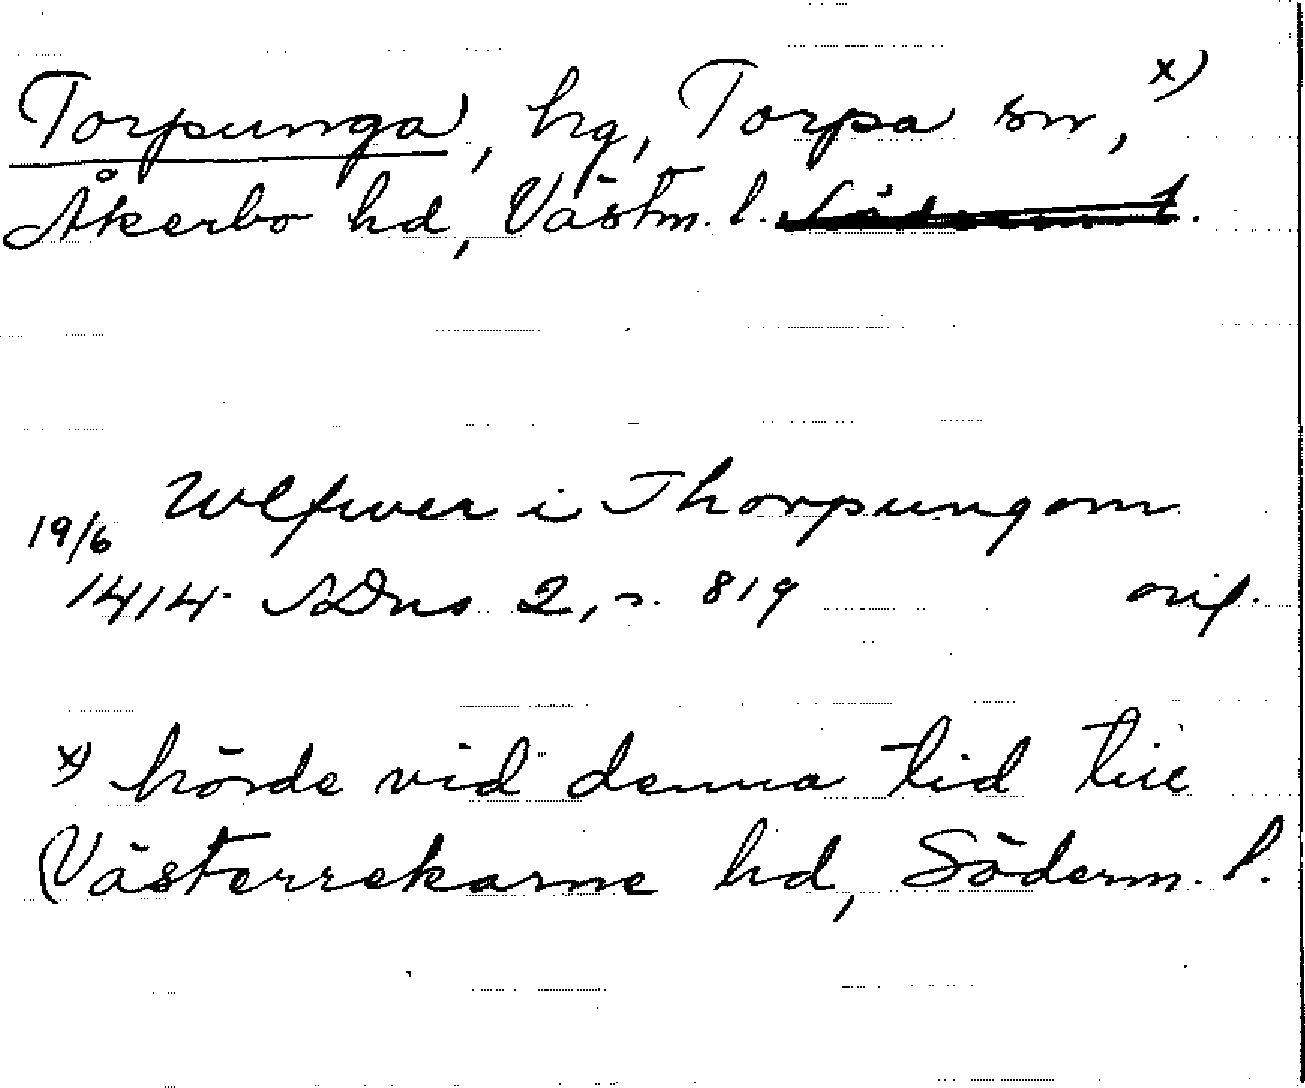 Torpunga, hg, Torpa sn, x)
Åkerbo hd, Västm. l. Söderm. l.
Wlfwer i Thorpungom
19/6
1414 SDns 2, s. 819 orig.
x) hörde vid denna tid till
Västerrekarne hd, Söderm. l.